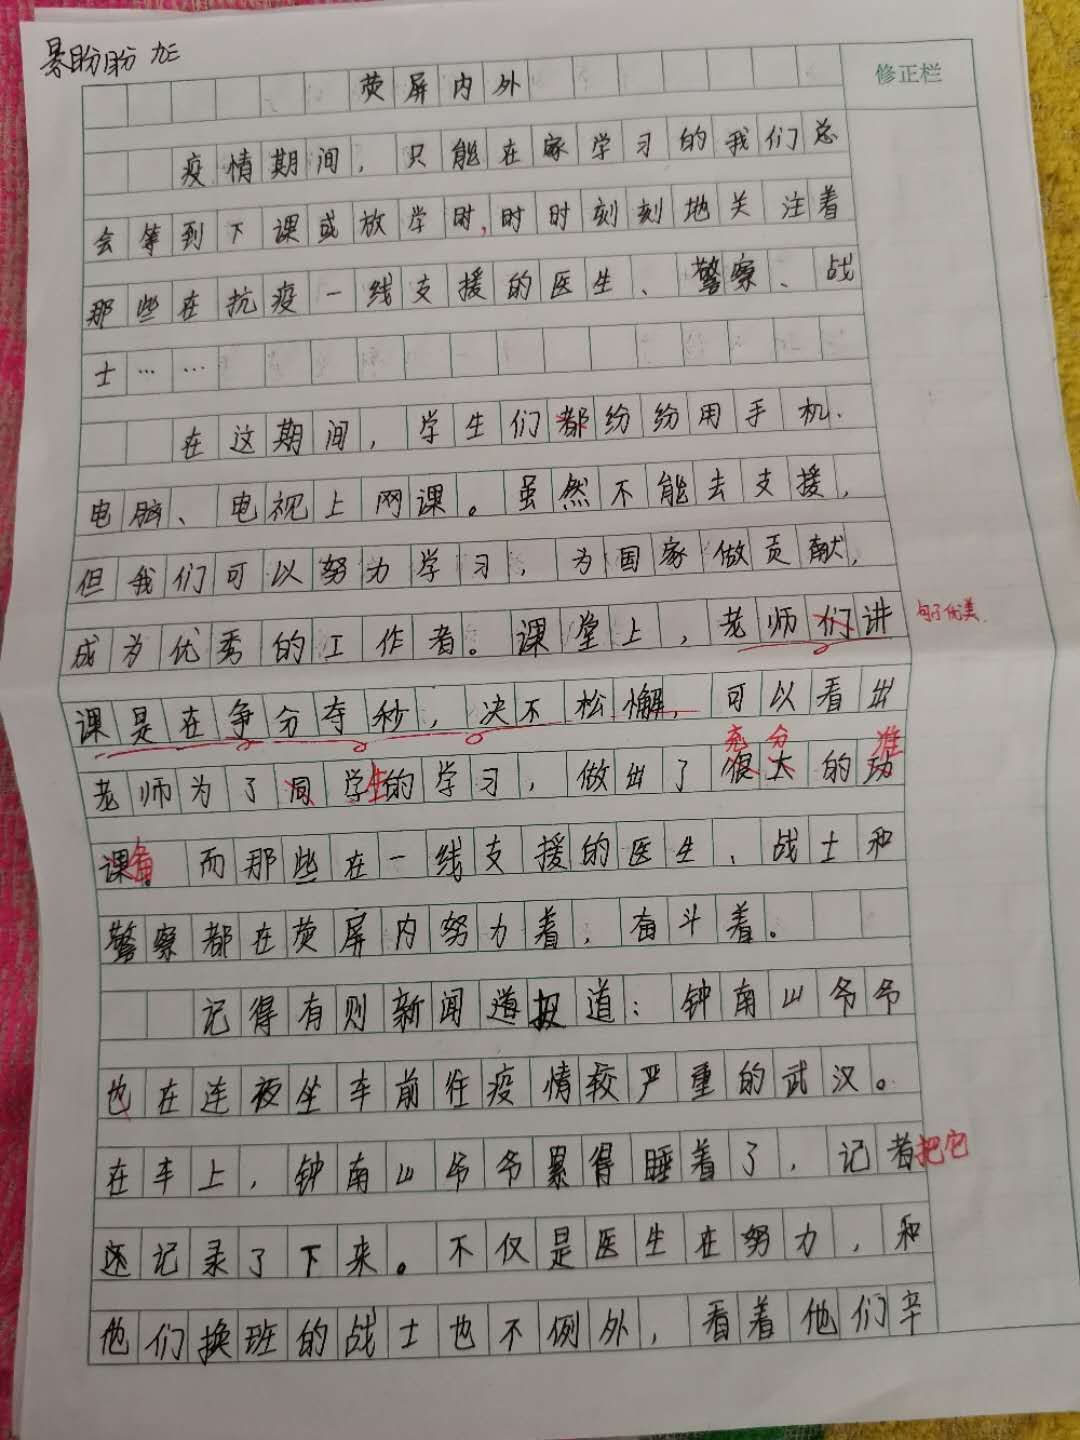 暴盼盼 九E
荧屏内外
修正栏
疫情期间，只能在家学习的我们总
会等到下课或放学时，时时刻刻地关注着
那些在抗疫一线支援的医生、警察、战
士……
在这期间，学生们都纷纷用手机、
电脑、电视上网课。虽然不能去支援，
但我们可以努力学习，为国家做贡献，
成为优秀的工作者。课堂上，老师们讲
句子优美
课是在争分夺秒，决不松懈，可以看出
充分 准
老师为了同学生的学习，做出了很大的功
课备。而那些在一线支援的医生、战士和
警察都在荧屏内努力着，奋斗着。
记得有则新闻道报道：钟南山爷爷
也在连夜坐车前往疫情较严重的武汉。
在车上，钟南山爷爷累得睡着了，记者把它
还记录了下来。不仅是医生在努力，和
他们换班的战士也不例外，看着他们辛